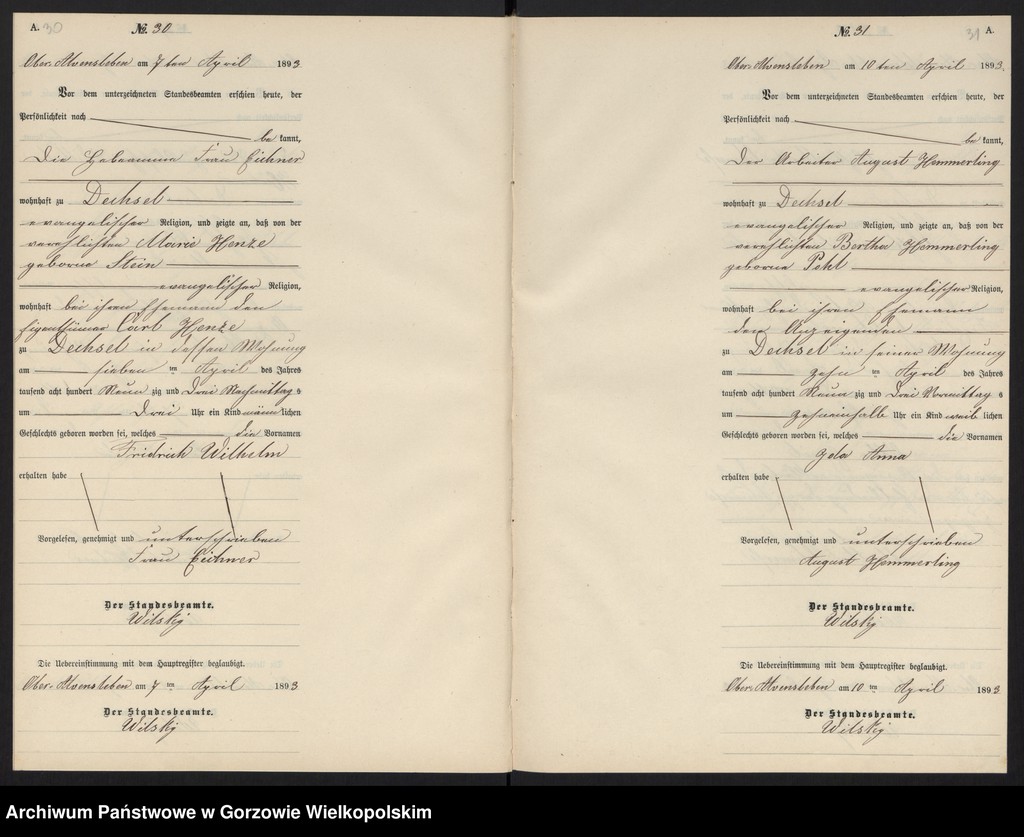 A. 30
No. 30
Ober-Alvensleben am 7ten April 1893
Vor dem unterzeichneten Standesbeamten erschien heute, der
Persönlichkeit nach
be kannt,
Die Hebeamme Frau Eichner
wohnhaft zu Dechsel
evangelischer Religion, und zeigte an, daß von der
verehlichten Marie Henze
geborne Stein
evangelischer Religion,
wohnhaft bei ihren Ehemann den
Eigenthümer Carl Henze
zu Dechsel in dessen Wohnung
am sieben ten April des Jahres
tausend acht hundert Neun zig und Drei Nachmittag s
um Drei Uhr ein Kind männ lichen
Geschlechts geboren worden sei, welches die Vornamen
Fridrich Wilhelm
erhalten habe
Vorgelesen, genehmigt und unterschrieben
Frau Eichner
Der Standesbeamte.
Wilsky
Die Uebereinstimmung mit dem Hauptregister beglaubigt.
Ober-Alvensleben am 7 ten April 1893
Der Standesbeamte.
Wilsky
No. 31
31 A.
Ober-Alvensleben am 10ten April 1893.
Vor dem unterzeichneten Standesbeamten erschien heute, der
Persönlichkeit nach
be kannt,
Der Arbeiter August Hemmerling
wohnhaft zu Dechsel
evangelischer Religion, und zeigte an, daß von der
verehlichten Bertha Hemmerling
geborne Pehl
evangelischer Religion,
wohnhaft bei ihren Ehemann
den Anzeigenden
zu Dechsel in seiner Wohnung
am zehn ten April des Jahres
tausend acht hundert Neun zig und Drei Vormittag s
um zehneinhalb Uhr ein Kind weib lichen
Geschlechts geboren worden sei, welches die Vornamen
Ida Anna
erhalten habe
Vorgelesen, genehmigt und unterschrieben
August Hemmerling
Der Standesbeamte.
Wilsky
Die Uebereinstimmung mit dem Hauptregister beglaubigt.
Ober-Alvensleben am 10 ten April 1893
Der Standesbeamte.
Wilsky
Archiwum Państwowe w Gorzowie Wielkopolskim